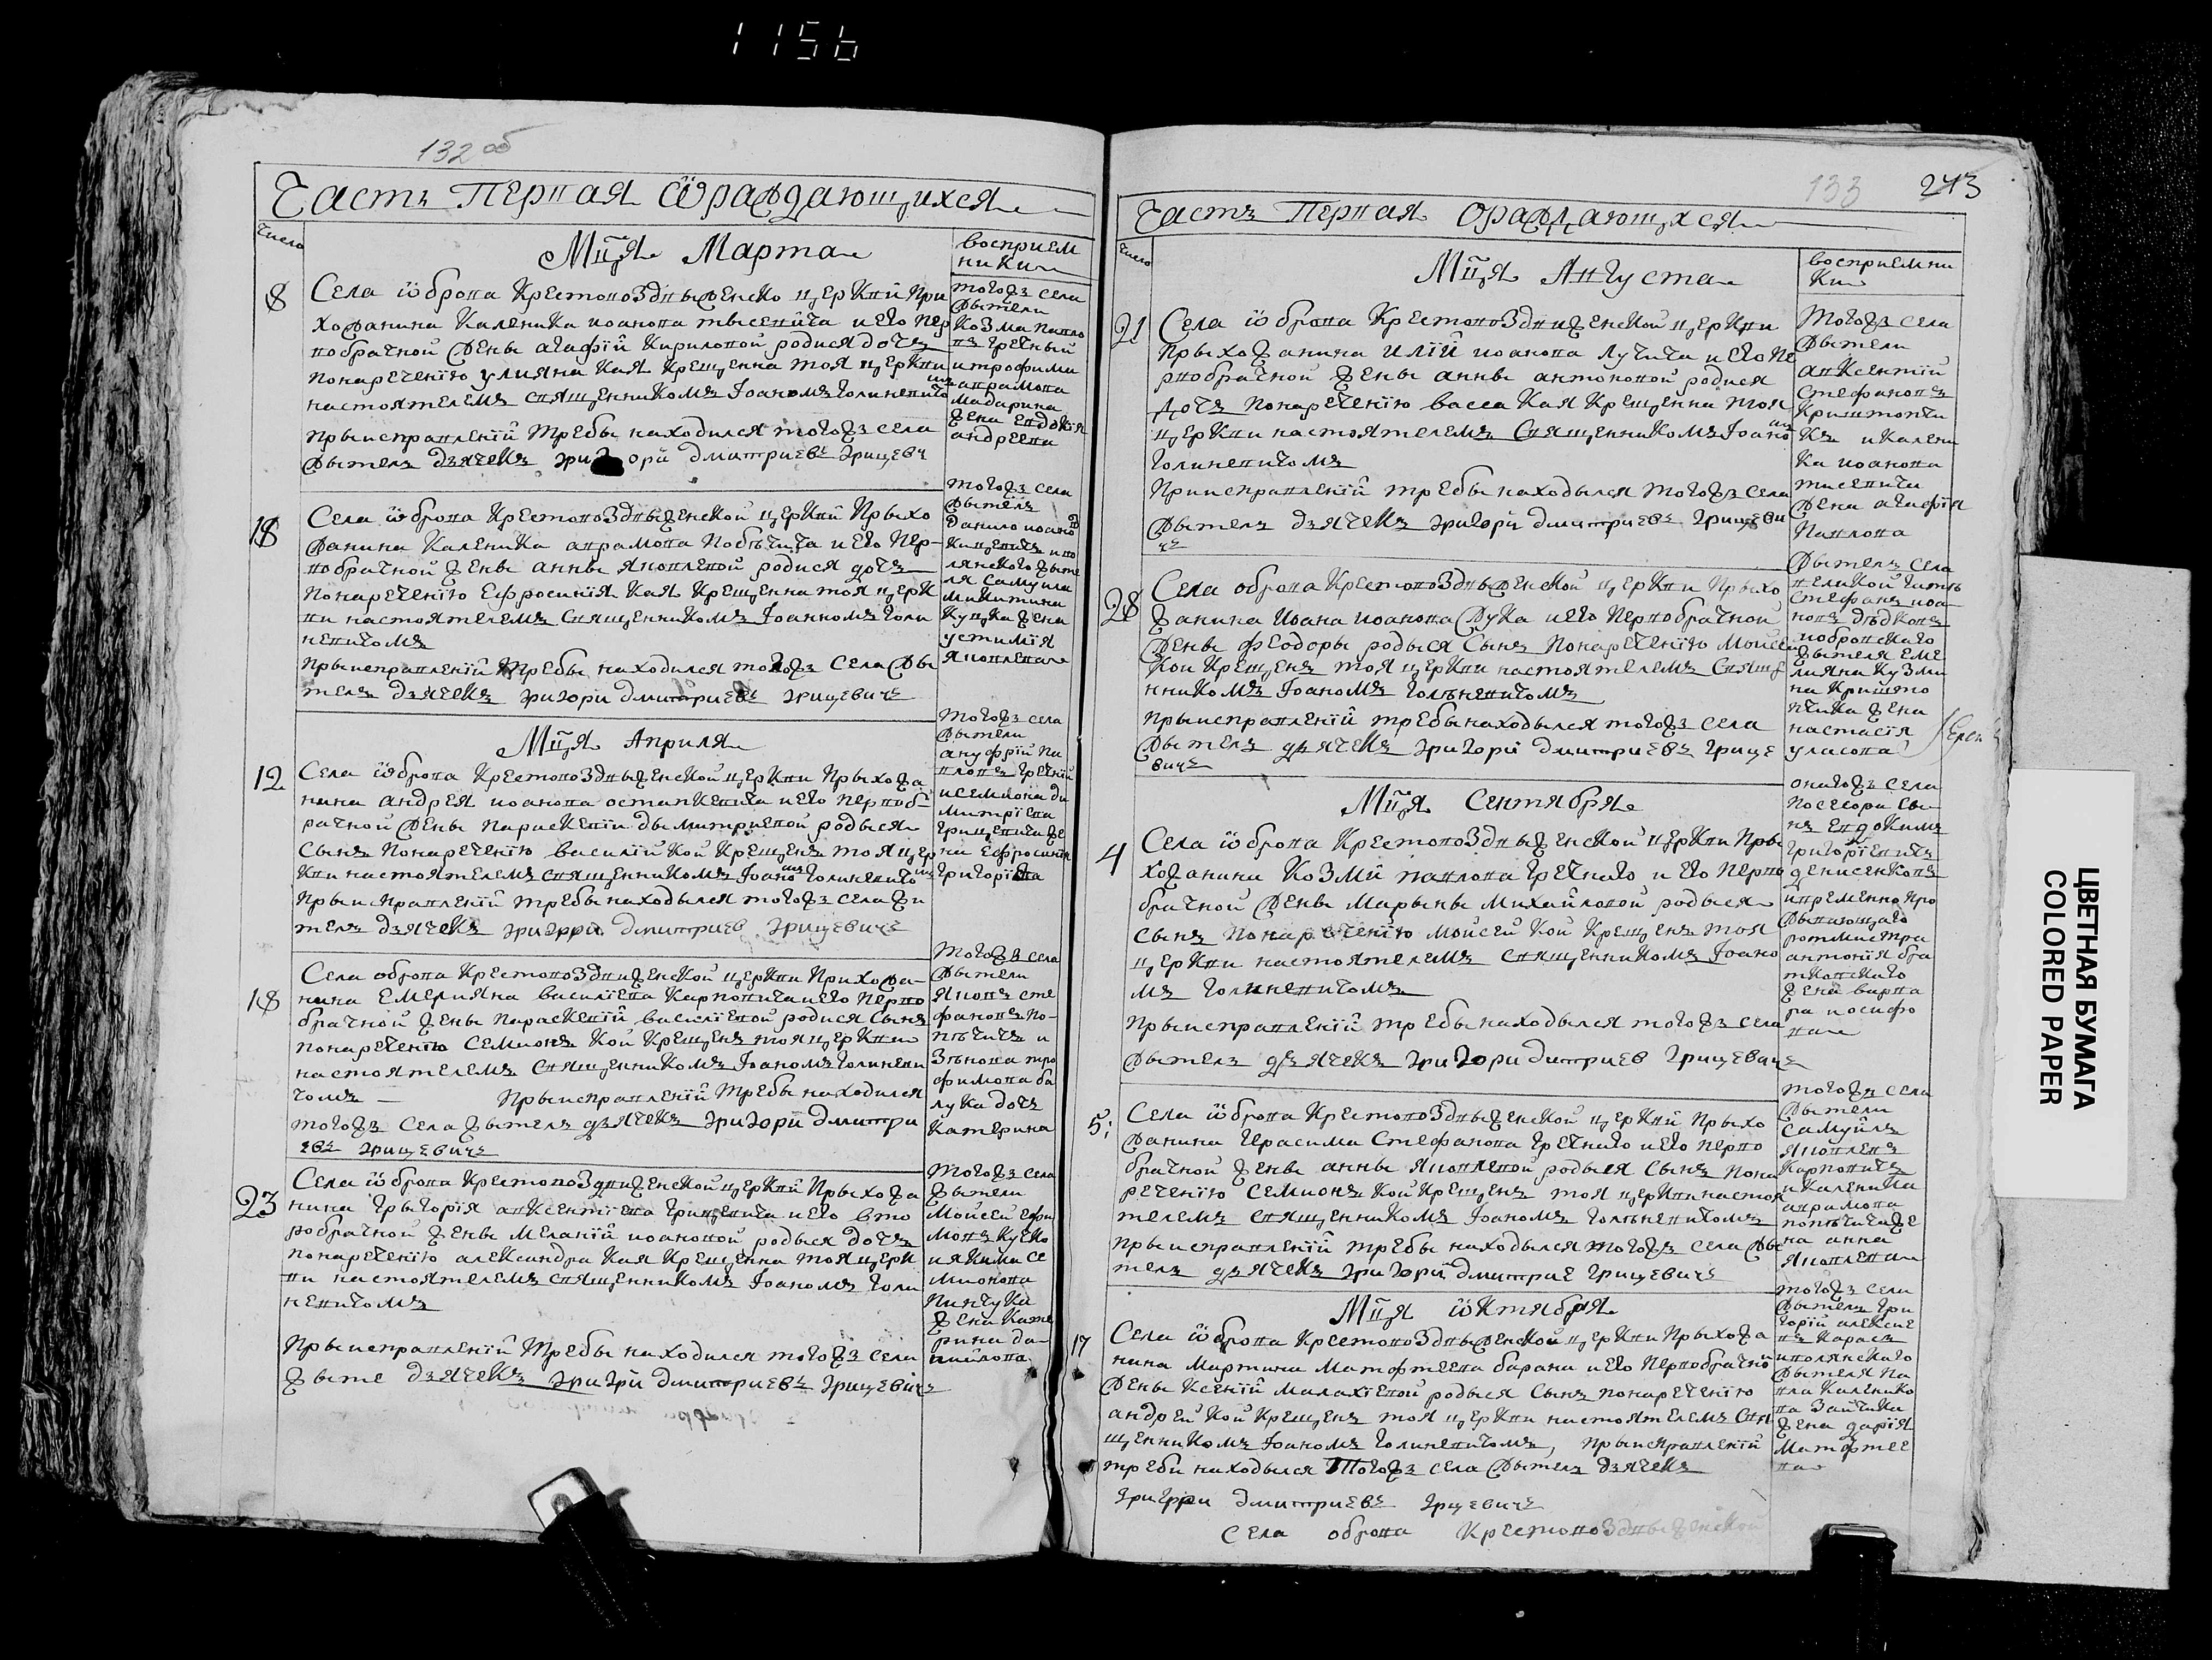 1156
132 об
Частъ Первая ѽраждающихся
Число
Мц҃я Марта
восприем
ники
8
Села ѽброва Крестовоздвыженско церквй При
хожанина Каленика иоанова тысевича и его пер
вобрачной жены агафїй Кириловой родися дочъ
понаречению улияна кая крещенна тоя церкви
настоятелемъ священникомъ Іоаномъ Голиневичомъ
прыисправленїй требы находился тогожъ села
жытель дзячекъ Григорй дмитриевъ Грицевич
тогожъ села
жытели
козма павло
въ гречный
итрофима
аврамова
мадарина
жена евдокїя
андреева
18
Села ѽброва Крестовоздвыженской церквй Прыхо
жанина Каленика аврамова Побѣгича и его Пер-
вобрачной жены анны яковлевой родися дочъ
понаречению Ефросинїя кая крещенна тоя церк
ви настоятелемъ священникомъ Іоанномъ Голи
невичомъ
прыисправленїй требы находился тогожъ села жы
тель дзячекъ Григори дмитриевъ Грицевичъ
тогожъ села
жытель
данило иоано
ляиского жыте
ля самуила
микитина
куцка жена
устимїя
яковлева
Мц҃я Априля
12
Села ѽброва Крестовоздвыженской церкви Прыхожа
нина андрея иоанова остапкевича и его первоб
рачной жены парискевїи дымитриевой родыся
сынъ понаречению василїй кой крещенъ тоя цер
кви настоятелемъ священникомъ Іоаномъ Голиневичомъ
прыисправленїй требы находылся тогожъ села жи
тель дзячекъ Григорри дмитриев Грицевичъ
тогожъ села
жытели
ануфрїй па
вловъ гречнїй
исемиона ди
митрїева
грицевича же
на Ефросинїя
григорїева
18
Села оброва Крестовоздвиженской церкви Прихожа-
нина Емелияна василїева Карповича и его перво
брачной жены параскевїй василїевой родися сынъ
понаречению семионъ кой крещенъ тоя церкви
настоятелемъ священникомъ Іоаномъ Голиневи
чомъ — Прыисправленїй требы находился
тогожъ села жытель дзячекъ Григорй дмитри
евъ Грицевичъ
тогожъ села
жытели
яковъ сте
фановъ по-
трофимова ба
лука дочъ
катерина
23
Села ѽброва Крестовоздвиженской церквй Прыхожа
нина Грыгорїя авксентїева Грицевича и его вто
робрачной жены меланїй иоановой родыся дочъ
понаречению александра кая крещенна тоя церк
ви настоятелемъ священникомъ Іоаномъ Голи
невичомъ
Прыисправленїй требы находился тогожъ села
жыте дзячекъ Григрй дмитриевъ Грицевичъ
тогожъ села
жытели
моисей ефи
мовъ
иякима се
мионова
пинчука
жена кате
рина да-
нийлова
133 243
Частъ Первая ораждающихся
Число
Мц҃я Августа
восприемни
ки
21
Села ѽброва Крестовоздвиженской церкви
прыхожанина илїй иоанова Лучича и его пе
рвобрачной жены анны антоновой родися
дочъ понаречению васса кая крещенна тоя
церкви настоятелемъ священникомъ Іоаномъ
Голиневичомъ
Приисправленїй требы находылся тогожъ села
жытель дзячекъ Григорй дмитриевъ Грицеви
чъ
Тогожъ села
жытели
авксентїй
стефановъ
криштопчи
къ и калени
ка иоанова
тисевича
жена агафїя
Павлова
28
Села оброва Крестовоздвыженской церкви Прыхо
жанина Иоана иоанова Жука и его Первобрачной
жены феодоры родыся сынъ понаречению моисей
кой крещенъ тоя церкви настоятелемъ свяще
нникомъ Іоаномъ Голѣневичомъ
прыисправленїй требы находылся тогожъ села
жытель дзячекъ Григорй дмитриевъ Грице
вичъ
жытель села
великой гать
стефанъ иоа-
новъ дѣдковъ
иобровского
жытеля еме
лияна кузми
на кришто
пчика жена
настасїя
уласова
Мц҃я Сентября
4
Села ѽброва Крестовоздвыженской церкви Пры
хожанина Козмй павлова Гречнаго и его перво
брачной жены марыны михайловой родыся
сынъ понаречению мойсей кой крещенъ тоя
церкви настоятелемъ священникомъ Іоано
мъ Голиневичомъ
Прыисправленїй требы находылся тогожъ села
жытель дзячекъ Григори дитриев Грицевичъ
онагожъ села
посесора сы-
нъ евдокимъ
григорїевичъ
денисенковъ
ивременно про
жывающаго
ротмистра
антонїя бра
тковского
жена варва
ра иосифо
ва
5:
Села ѽброва Крестовоздвыженской церквй Прыхо
жанина Герасима Стефанова Гречнаго и его перво
брачной жены анны яковлевой родыся сынъ пона
речению семионъ кой крещенъ тоя церкви настоя
телемъ священникомъ Іоаномъ Голѣневичомъ
прыисправленїй требы находылся тогожъ села жы
тель дзячекъ Григорй дмитрие Грицевичъ
тогожъ села
жытели
самуйлъ
яковлевъ
карповичъ
и каленика
аврамова
попѣчича же
на анна
яковлева
Мц҃я ѽктября
17
Села ѽброва Крестовоздвыженской церкви Прыхожа
нина мартина матфтеева барана и его первобрачной
жены ксенїй малахїевой родыся сынъ понаречению
андрей кой крещенъ тоя церкви настоятелемъ свя
щенникомъ Іоаномъ Голиневичомъ, прыисправленїй
треби находылся тогожъ села жытель дзячекъ
Григрри дмитриевъ Грцевичъ
Села оброва Крестовоздвыженской
тогожъ села
жытель гри
горїй алексие
въ карасъ
иполянскаго
жытеля па
вла каленико
ва зайчика
жена дарїя
матфтее
ва
ЦВЕТНАЯ БУМАГА
COLORED PAPER